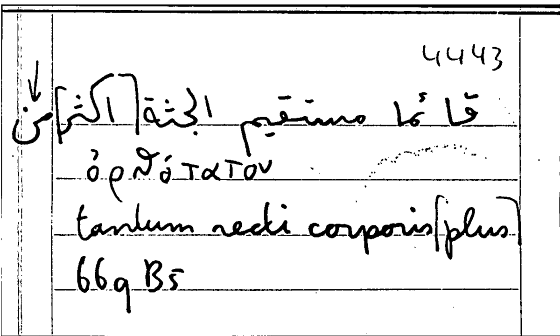 4443
قائما مستقيم الجثة [اكثر] من
ὀρθότατον
tantum recti corporis [plus]
669 B5